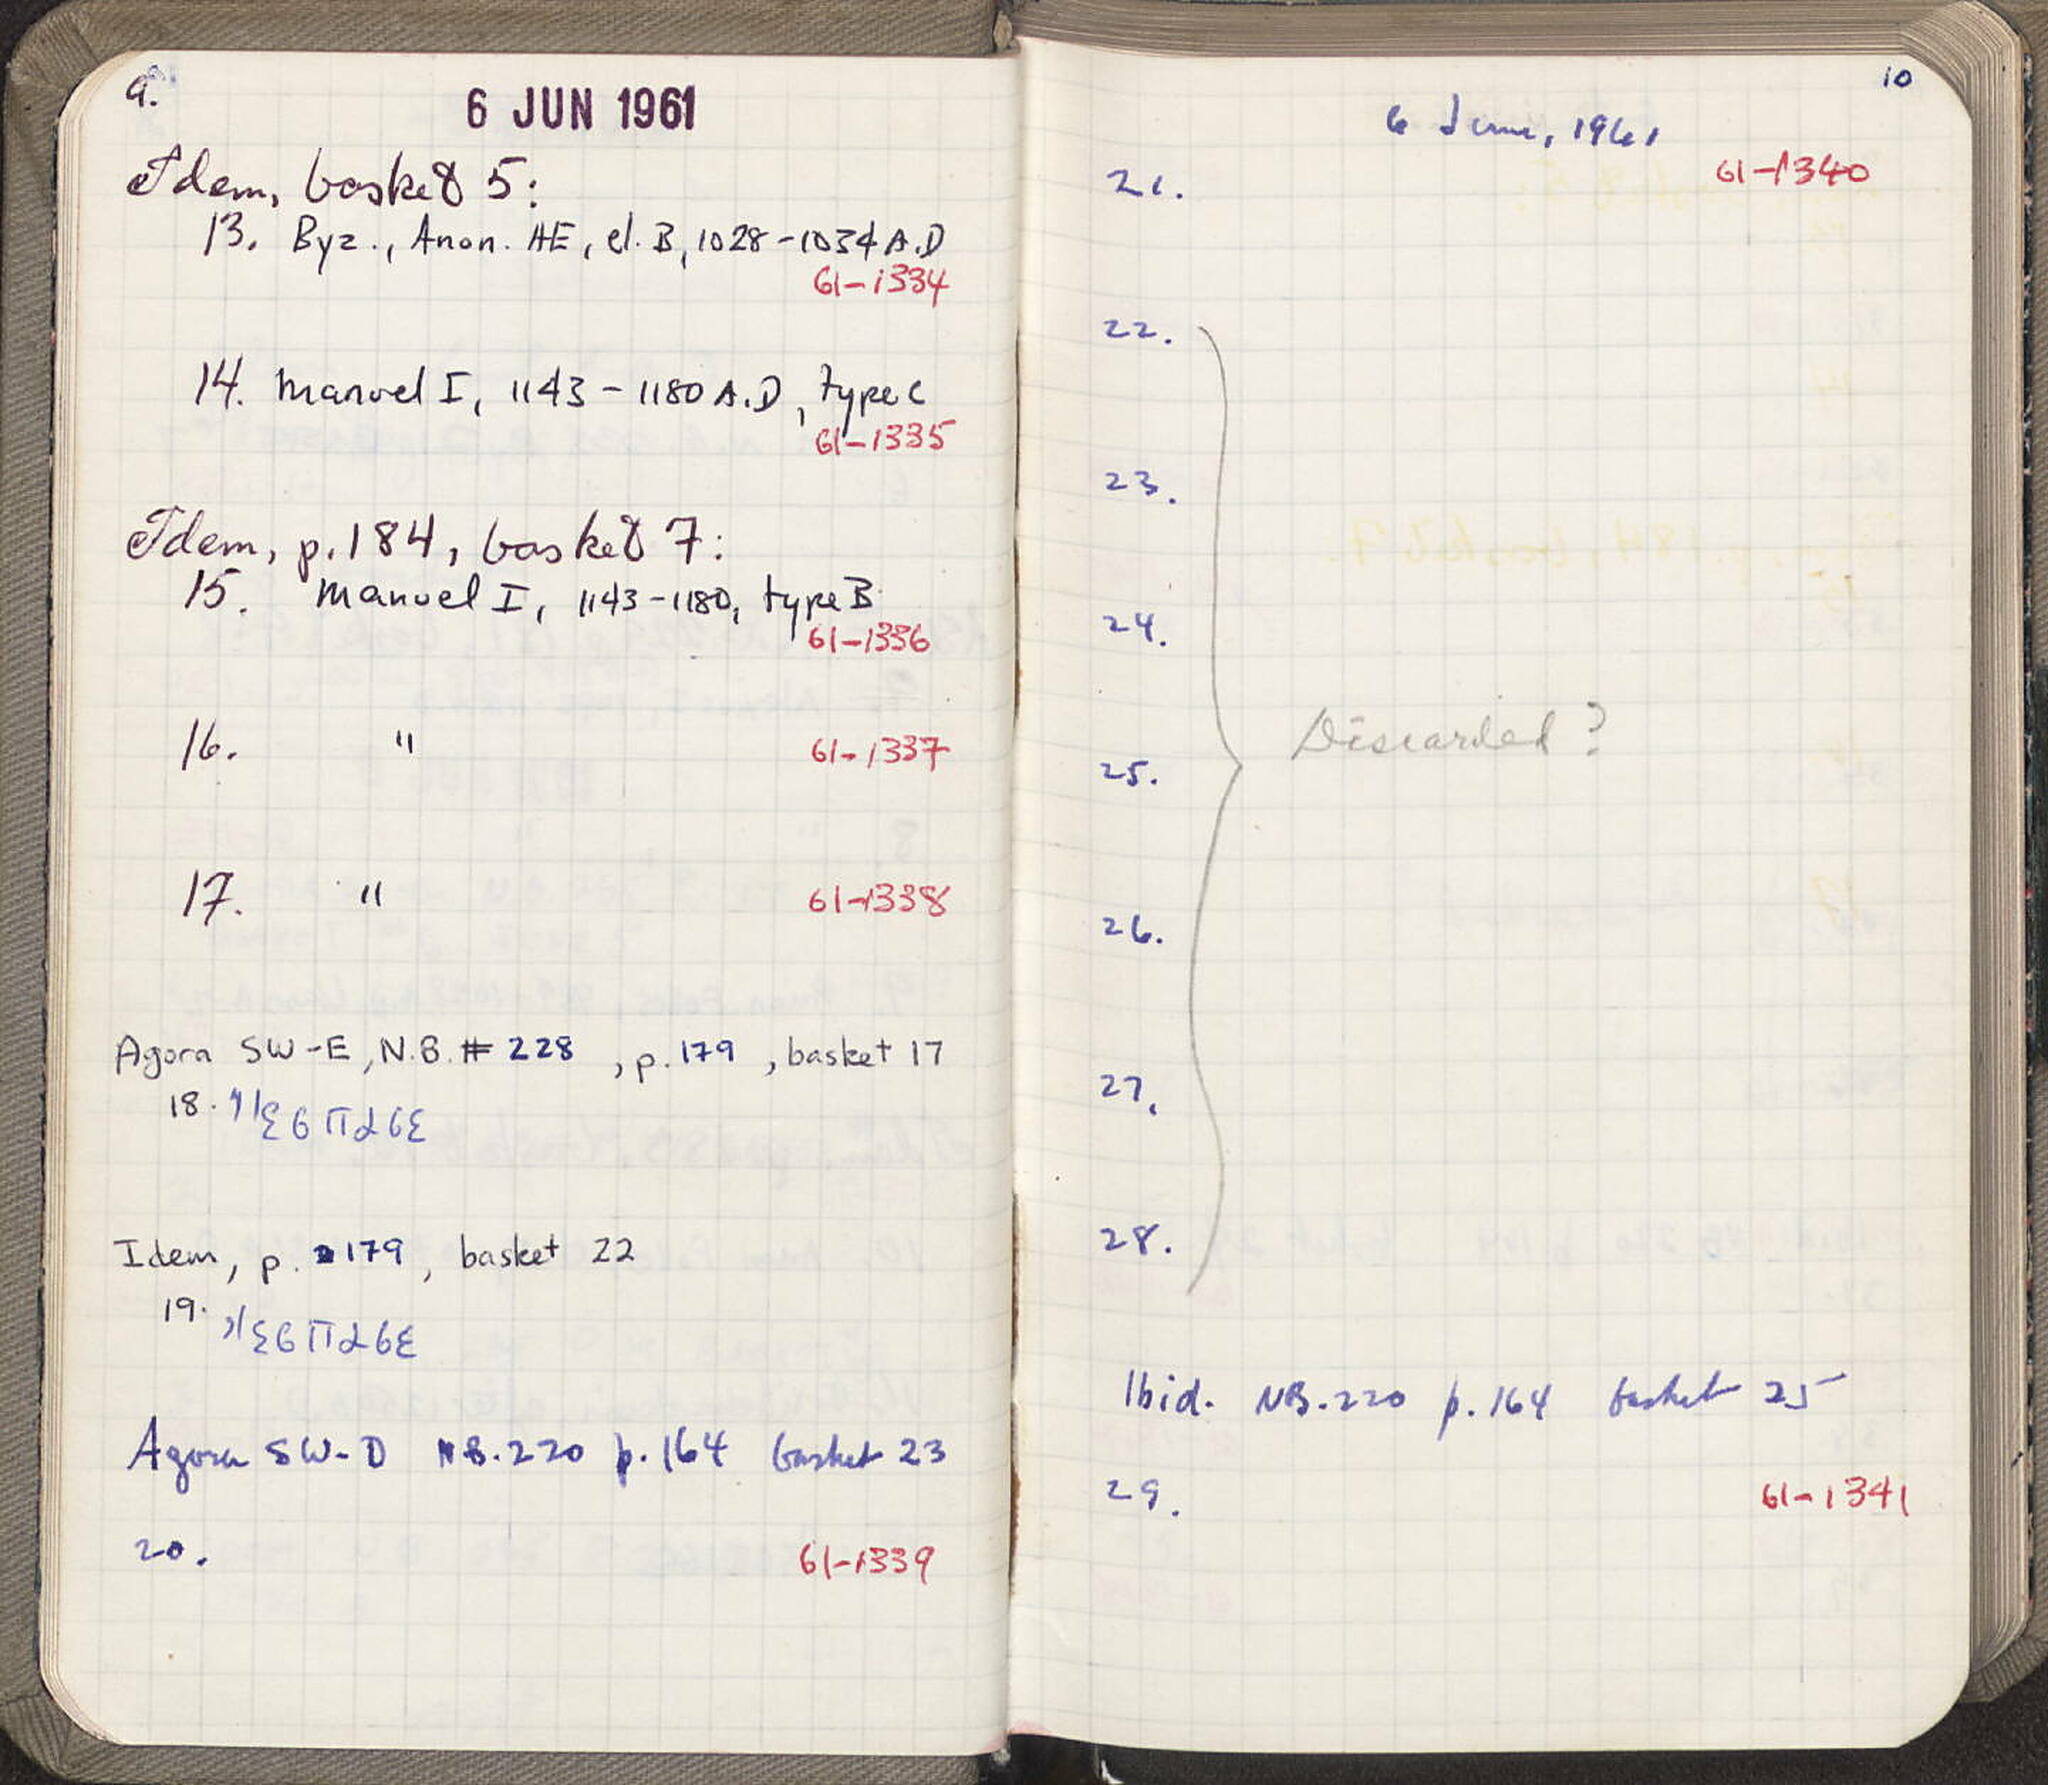 9.
6 JUN 1961
Idem, basket 5:
13. Byz., Anon. AE, cl. B, 1028-1034 A.D
61-1334
14. Manuel I, 1143-1180 A.D, type C
61-1335
Idem, p. 184, basket 7:
15. Manuel I, 1143-1180, type B
61-1336
16. " 61-1337
17. " 61-1338
Agora SW-E, N.B. # 228, p. 179, basket 17
18.
Idem, p. 179, basket 22
19.
Agora SW-D NB.220 p.164 basket 23
20. 61-1339
10
6 June, 1961
21. 61-1340
22.
23.
24.
Discarded?
25.
26.
27.
28.
Ibid. NB.220 p.164 basket 25
29. 61-1341